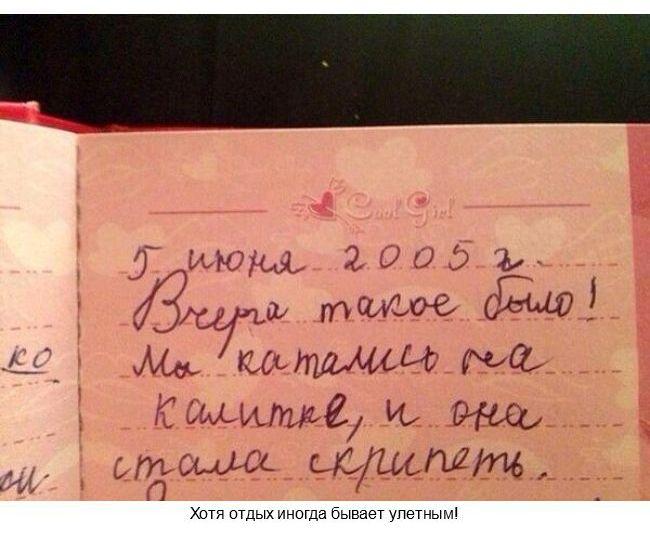 Cool Girl
5 июня 2005 г.
Вчера такое было!
ко
Мы катались на
калитке, и она
стала скрипеть.
Хотя отдых иногда бывает улетным!